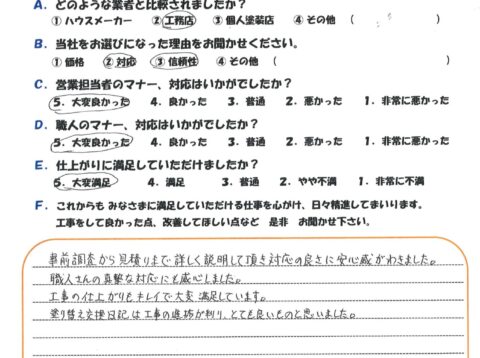 A. どのような業者と比較されましたか？
① ハウスメーカー ② 工務店 ③ 個人塗装店 ④ その他 （ ）
B. 当社をお選びになった理由をお聞かせください。
① 価格 ② 対応 ③ 信頼性 ④ その他 （ ）
C. 営業担当者のマナー、対応はいかがでしたか？
5. 大変良かった 4. 良かった 3. 普通 2. 悪かった 1. 非常に悪かった
D. 職人のマナー、対応はいかがでしたか？
5. 大変良かった 4. 良かった 3. 普通 2. 悪かった 1. 非常に悪かった
E. 仕上がりに満足していただけましたか？
5. 大変満足 4. 満足 3. 普通 2. やや不満 1. 非常に不満
F. これからも みなさまに満足していただける仕事を心がけ、日々精進してまいります。
工事をして良かった点、改善してほしい点など 是非 お聞かせ下さい。
事前調査から見積りまで詳しく説明して頂き対応の良さに安心感がわきました。
職人さんの真摯な対応にも感心しました。
工事の仕上がりもキレイで大変満足しています。
塗り替え交換日記は工事の進捗が判り、とても良いものと思いました。